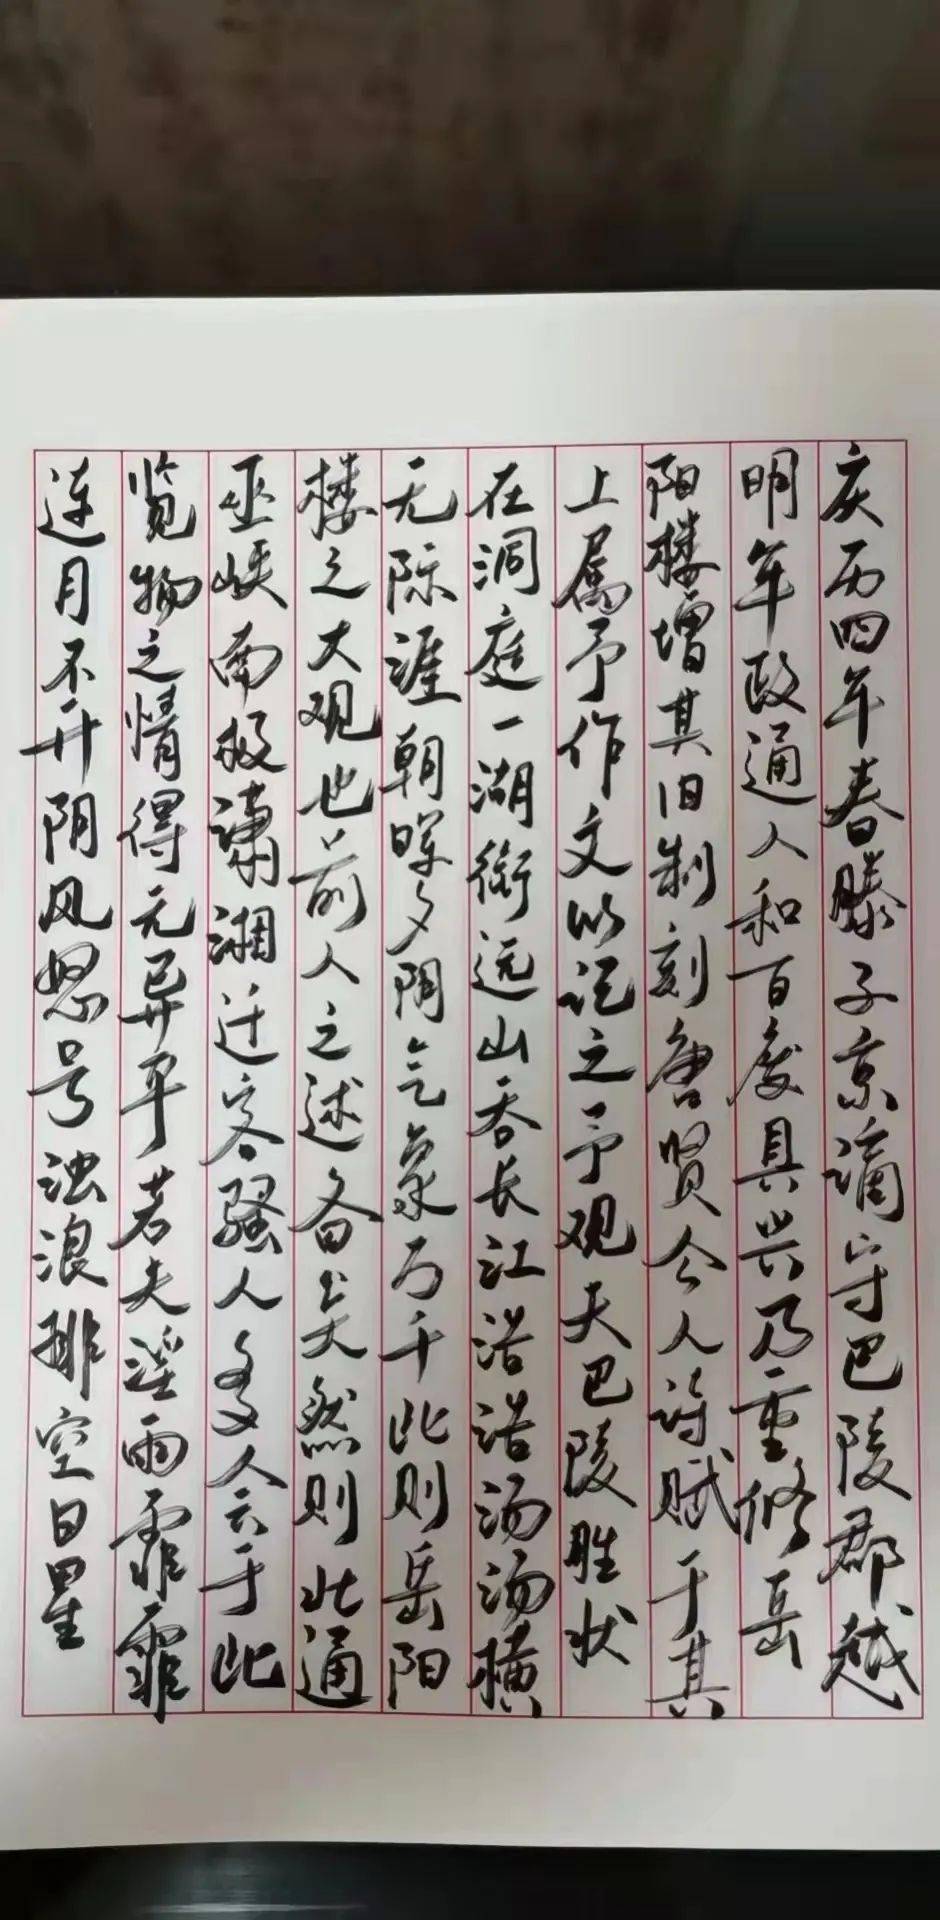 庆历四年春滕子京谪守巴陵郡越
明年政通人和百废具兴乃重修岳
阳楼增其旧制刻唐贤今人诗赋于其
上属予作文以记之予观夫巴陵胜状
在洞庭一湖衔远山吞长江浩浩汤汤横
无际涯朝晖夕阴气象万千此则岳阳
楼之大观也前人之述备矣然则北通
巫峡南极潇湘迁客骚人多会于此
览物之情得无异乎若夫淫雨霏霏
连月不开阴风怒号浊浪排空日星